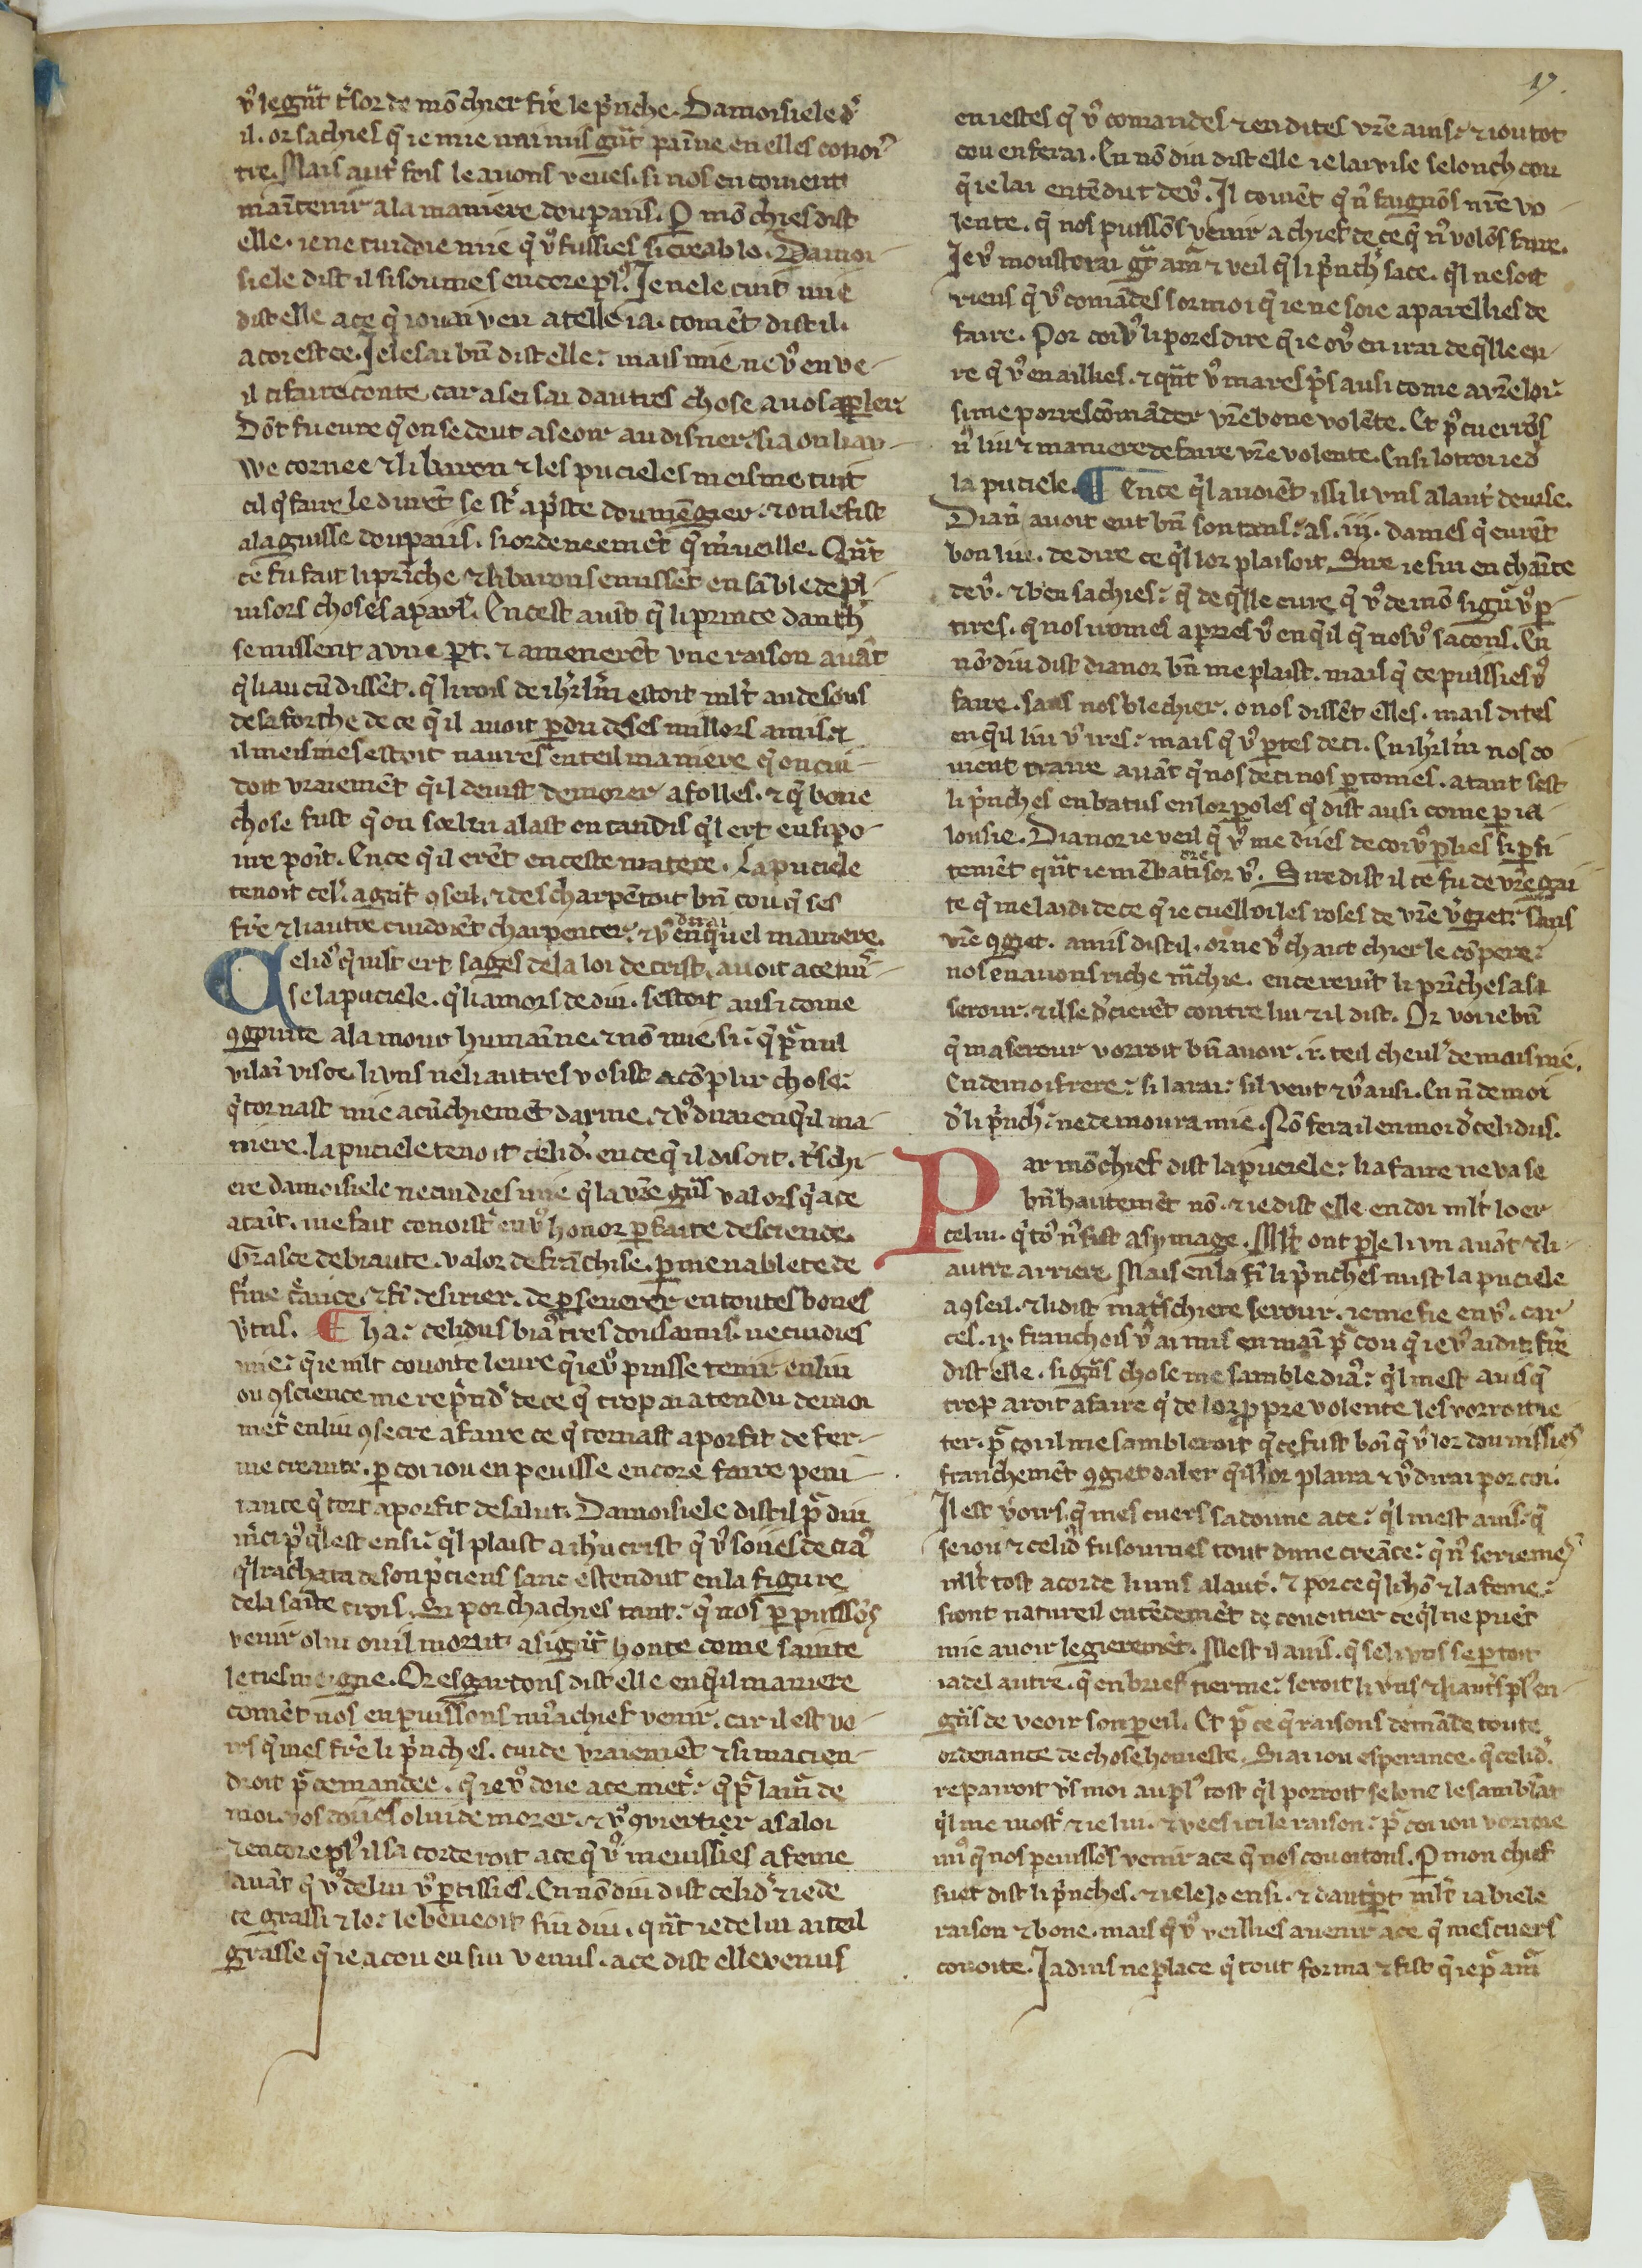 17.
v᷒ le gñt tᷤsor de mō chier frē le pͥnche. Damoisiele dͥ
il. or sachies qͥ ie mie nai mis gñt painne en elles conoiᷤ
tre. Mais autᷤ fois le auons veues. si nos en couient
maītenir a la maniere dou pais. P mō chief dist
elle. ie ne cuidoie mie qͥ v᷒ fussies si creable. Damoi
siele dist il si soumes encore pl᷒. Je ne le cuit mie
dist elle a ce qͥ iou ai veu a celle ia. comēt dist il.
acoi estee. Je le sai bñ dist elle: mais mie ne v᷒ en ve-
il ci faire conte car asei sai dautres chose a vos a pler
Dōt fu eure qͥ on se deut aseoir au disner. si a on liau-
we cornee & li baron & les pucieles meisme tuit
cil qͥ faire le durēt se sᷤt apͥste dou mēgier. & on le fist
a la guisse dou pais. si ordeneemēt qͥ mᷤueille. Qñt
ce fu fait li prīche & li barons emissēt ensāble de pl-
uisors choses a paroł. En cest auīt qͥ li prince danthͥ
se missent a vne pt. & amenerēt vne raison auāt
qͥ li aucū dissēt. qͥ li rois de ihr̄lm̄ estoit mlt̄ au desous
de sa forche de ce qͥ il auoit pdu de ses millors amis. &
il meismes estoit naures en teil maniere qͥ on cui-
doit vraiemēt qͥ il deuist demorer afolles. & qͥ bone
chose fust qͥ on sor lui alast en tandis qͥl ert en si po-
ure point. En ce qͥ il erēt en ceste matere. La puciele
tenoit celͥ. a gñt ɔseil. & descharpētoit bñ cou qͥ ses
frē & li autre cuidoiēt charpenter. & v᷒ dirai en qͥuel maniere.
Celidᷤ qͥ mlt ert sages de la loi de crist auoit ace mͥ-
se la puciele. qͥ li amors de diu. sestoit ausi come
ɔgointe a la mour humaīne. & nō mie si: qͥ pᷓ nul
vilai visce li vns ne li autres vosist acōplir chose:
qͥ tornast mie a cūchiemēt darme. & v᷒ dirai en qͥil ma-
niere. La puciele tenoit celidᷤ. en ce qͥ il disoit. tᷤschi-
ere damoisiele ne cuidies mie qͥ la vrē gñs valors qͥ a ce
ataīt. me fait conoistᷤ en v᷒ honor pfaite desciende.
Grasce de biaute. valor de frāchise. pmenablete de
fine cᷤāce. & fī desirier. de pseuerer en toutes bones
vᷤtus. ¶ Ha: celidus biaᷤ tres dous amis. ne cuidies
mie: qͥ ie mlt couoite leure qͥ ie v᷒ puisse tenir en liu
ou ɔscience me repᷤndᷤ de ce qͥ trop ai atendu de moi
metᷤ en liu ɔsecre a faire ce qͥ tornast a porfit de fer-
me creance. p coi iou en peuisse encore faire peni-
tance qͥ tort a porfit de salut. Damoisiele dist il pᷓ diu
mᷤci pᷤ qͥl est ensi: qͥl plaist a ih̄u crist qͥ v᷒ soiies de ciaᷤ
qͥl rachata de son pᷤciens sanc estendut en la figure
de la saīte crois. Si porchachies tant: qͥ nos p puissōs
venir o lui ou il morut a si gñt honte come sainte
le tiesmoigne. Or esgardons dist elle en qͥil maniere
comēt nos en puissons miᷤ a chief venir. car il est vo-
irs qͥ mes frē li pͥnches. cuide vraiemēt & si ma cien-
droit pᷓ cemandee. qͥ ie v᷒ doie ace metᷤ: qͥ pᷓ lamᷤ de
moi. vos doiies o lui demorer. & v᷒ ɔuiertier a sa loi
& encore pl᷒ il sa corderoit a ce qͥ v᷒ meuissies a feme
auāt qͥ v᷒ de lui v᷒ ptissies. En nō diu dist celidᷤ & ie de
ce grassi & lo: le beneoit fiu diu. qñt ie de lui ai teil
grasse qͥ ie a cou en sui venus. a ce dist elle venus
en iestes qͥ v᷒ comandes & en dites vrē auis: & iou tot
cou en ferai. En nō diu dist elle ie lai vise selonch cou
qͥ ie lai entēdut de v᷒. Il couiēt qͥ n᷒ faignōs nrē vo-
lente. qͥ nos puissōs venir a chief de ce qͥ n᷒ volōs faire.
Je v᷒ mousterai gᷓt amᷤ & veil qͥ li pͥnchͥ sace. qͥl ne soit
riens qͥ v᷒ comādes sor moi qͥ ie ne soie aparellies de
faire. Por coi v᷒ li pores dire qͥ ie o v᷒ en irai de qͥlle eu-
re qͥ v᷒ en aillies. & qñt v᷒ mares pͥs ausi come a vrē loi:
si me porres cōmāder vrē bone volēte. Et pᷤ cuerrōs
n᷒ liu & maniere de faire vrē volente. Ensi lotroie dᷤ
la puciele. ¶ En ce qͥl auoiēt issi li vns a lautᷤ deuise.
Dianᷤ auoit eut bñ son tans: as .iij. dames qͥ eurēt
bon liu. de dire ce qͥl lor plaisoit. Sire ie sui enchaīte
de v᷒. & ben sachies: qͥ de qͥlle eure qͥ v᷒ de mō signᷤ v᷒ p-
tires. qͥ nos iromes apries v᷒ en qͥil qͥ nos v᷒ sacons. En
nō diu dist dianor bñ me plaist. mais qͥ ce puissies v᷒
faire. sans nos blechier. o nos dissēt elles. mais dites
en qͥil liu v᷒ ires: mais qͥ v᷒ ptes de ci. En ihr̄lm̄ nos co-
uient traire auāt qͥ nos de ci nos ptomes. atant sest
li pͥnches enbatus en lor poles qͥ dist ausi come p ia-
lousie. Dianor ie veil qͥ v᷒ me diies de coi v᷒ plies si pfi
temēt qñt ie mēbati ore sor v᷒. Sire dist il ce fu de vrē gai
te qͥ me laidi de ce qͥ ie cuelloi les roses de vrē vᷤgier: sans
vrē ɔgiet. amis dist il. or ne v᷒ chaut chier le cōpere:
nos en auons riche mᷤchie. en ce reuīt li prīches a sa
serour. & il se dᷤcierēt contre lui & il dist. Or voi ie bñ
qͥ ma serour vorroit bñ auoir .i. teil cheulᷤ de maisnie.
En de moi frere: si larai: sil veut & v᷒ ausi. En n̄ de moi
dᷤ li pͥnchͥ: ne demoura mie. Nō fera il en moi dᷤ celidus.
Par mō chief dist la puciele: li afaire ne va se
bñ hautemēt nō. & ie dist elle en doi mlt̄ loer
celui. qͥ tō n᷒ fist a sy image. Mlt̄ ont ple li vn auāt & li
autre arriere. Mais en la fī li pͥnches mist la puciele
a ɔseil. & li dist matᷤschiere serour. ie me fie en v᷒. car
ces .ix. franchois v᷒ ai mis en maī pᷓ cou qͥ ie v᷒ aidu. frē
dist elle. si gñs chose me samble diaᷤ: qͥl mest auis qͥ
trop aroit a faire qͥ de lor ppre volente les vorroit ie-
ter. pᷓ cou il me sambleroit qͥ ce fust boī qͥ v᷒ lor dounissies
franchemēt ɔgiet daler qͥil lor plaira & v᷒ dirai por coi.
Il est voirs. qͥ mes cuers sadoune a ce: qͥl mest auis: qͥ
se iou & celidᷤ fusoumes tout dune creāce: qͥ n᷒ seriemes
mlt̄ tost acorde li uns a lautᷤ. & por ce qͥ li hō & la feme:
siont natureil entēdemēt de conuoitier ce qͥl ne puēt
mie auoir legieremēt. Mest il auis. qͥ se li vns se ptoit
ia del autre. qͥ en brief tierme: seroit li vns & li autᷤs pl᷒ en-
gñs de veoir son peil. Et pᷓ ce qͥ raisons demāde toute
ordenance de chose honieste. Si ai iou esperance. qͥ celidᷤ.
repairoit vᷤs moi au pl᷒ tost qͥl porroit selonc le samblāt
qͥl me mostᷤ & ie lui. & vees ici le raison: pᷓ coi iou vorroie
miᷤ qͥ nos peuissōs venir a ce qͥ nos couoitons. P mon chief
suer dist li pͥnches. & ie le lo ensi. & dautᷤpt mlt̄ ia biele
raison & bone. mais qͥ v᷒ veillies auenir a ce qͥ mes cuers
couoite. Ja dius ne place qͥ tout forma & fist qͥ ie pᷓ amᷤ